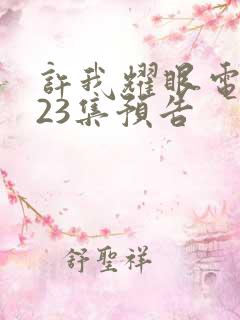 許我耀眼電
23集預告
舒聖祥